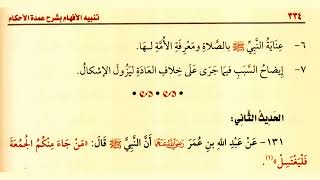 ٣٣٤ تنبيه الأفهام بشرح عمدة الأحكام
٦- عِنَايَةُ النَّبِيِّ ﷺ بِالصَّلَاةِ وَمَعْرِفَةِ الأُمَّةِ لَهَا.
٧- إِيضَاحُ السَّبَبِ فِيمَا جَرَى عَلَى خِلَافِ العَادَةِ لِيَزُولَ الإِشْكَالُ.
الحَدِيثُ الثَّانِي:
١٣١- عَنْ عَبْدِ اللهِ بنِ عُمَرَ رَضِيَ اللهُ عَنْهُمَا أَنَّ النَّبِيَّ ﷺ قَالَ: «مَنْ جَاءَ مِنْكُمُ الجُمُعَةَ
فَلْيَغْتَسِلْ»(١).